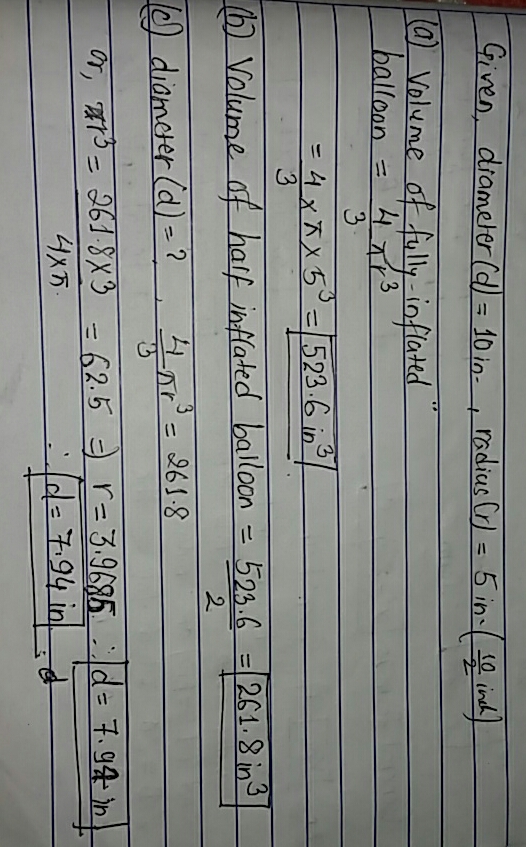 Given, diameter(d) = 10 in- , radius(r) = 5 in. (10/2 inch)
(a) Volume of fully-inflated
balloon = 4/3 πr³
= 4/3 × π × 5³ = 523.6 in³
(b) Volume of half inflated balloon = 523.6/2 = 261.8 in³
(c) diameter(d) = ? , 4/3 πr³ = 261.8
or, r³ = 261.8×3/4×π. = 62.5 ⇒ r = 3.9685 ∴ d = 7.94 in
∴ d = 7.94 in ∴ d